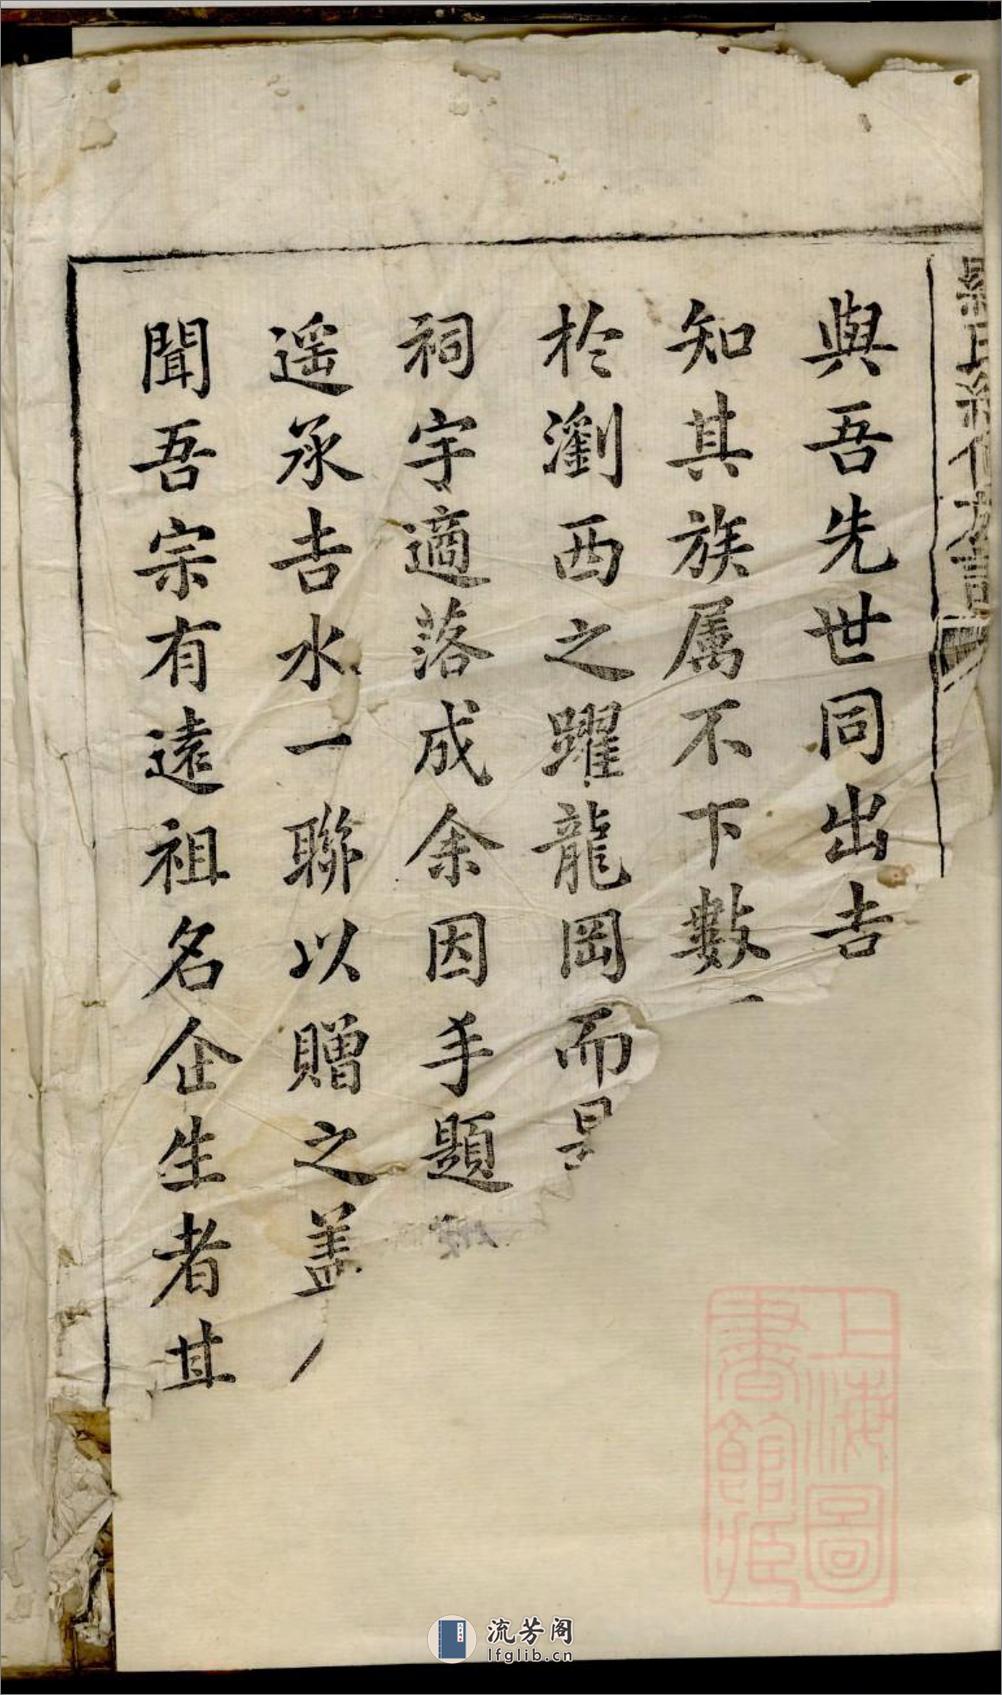 與吾先世同出吉
知其族属不下數
於瀏西之躍龍岡而
祠宇適落成余因手題
遥承吉水一聯以贈之盖
聞吾宗有遠祖名企生者其
上海圖
書館藏
流芳阁
lfglib.cn